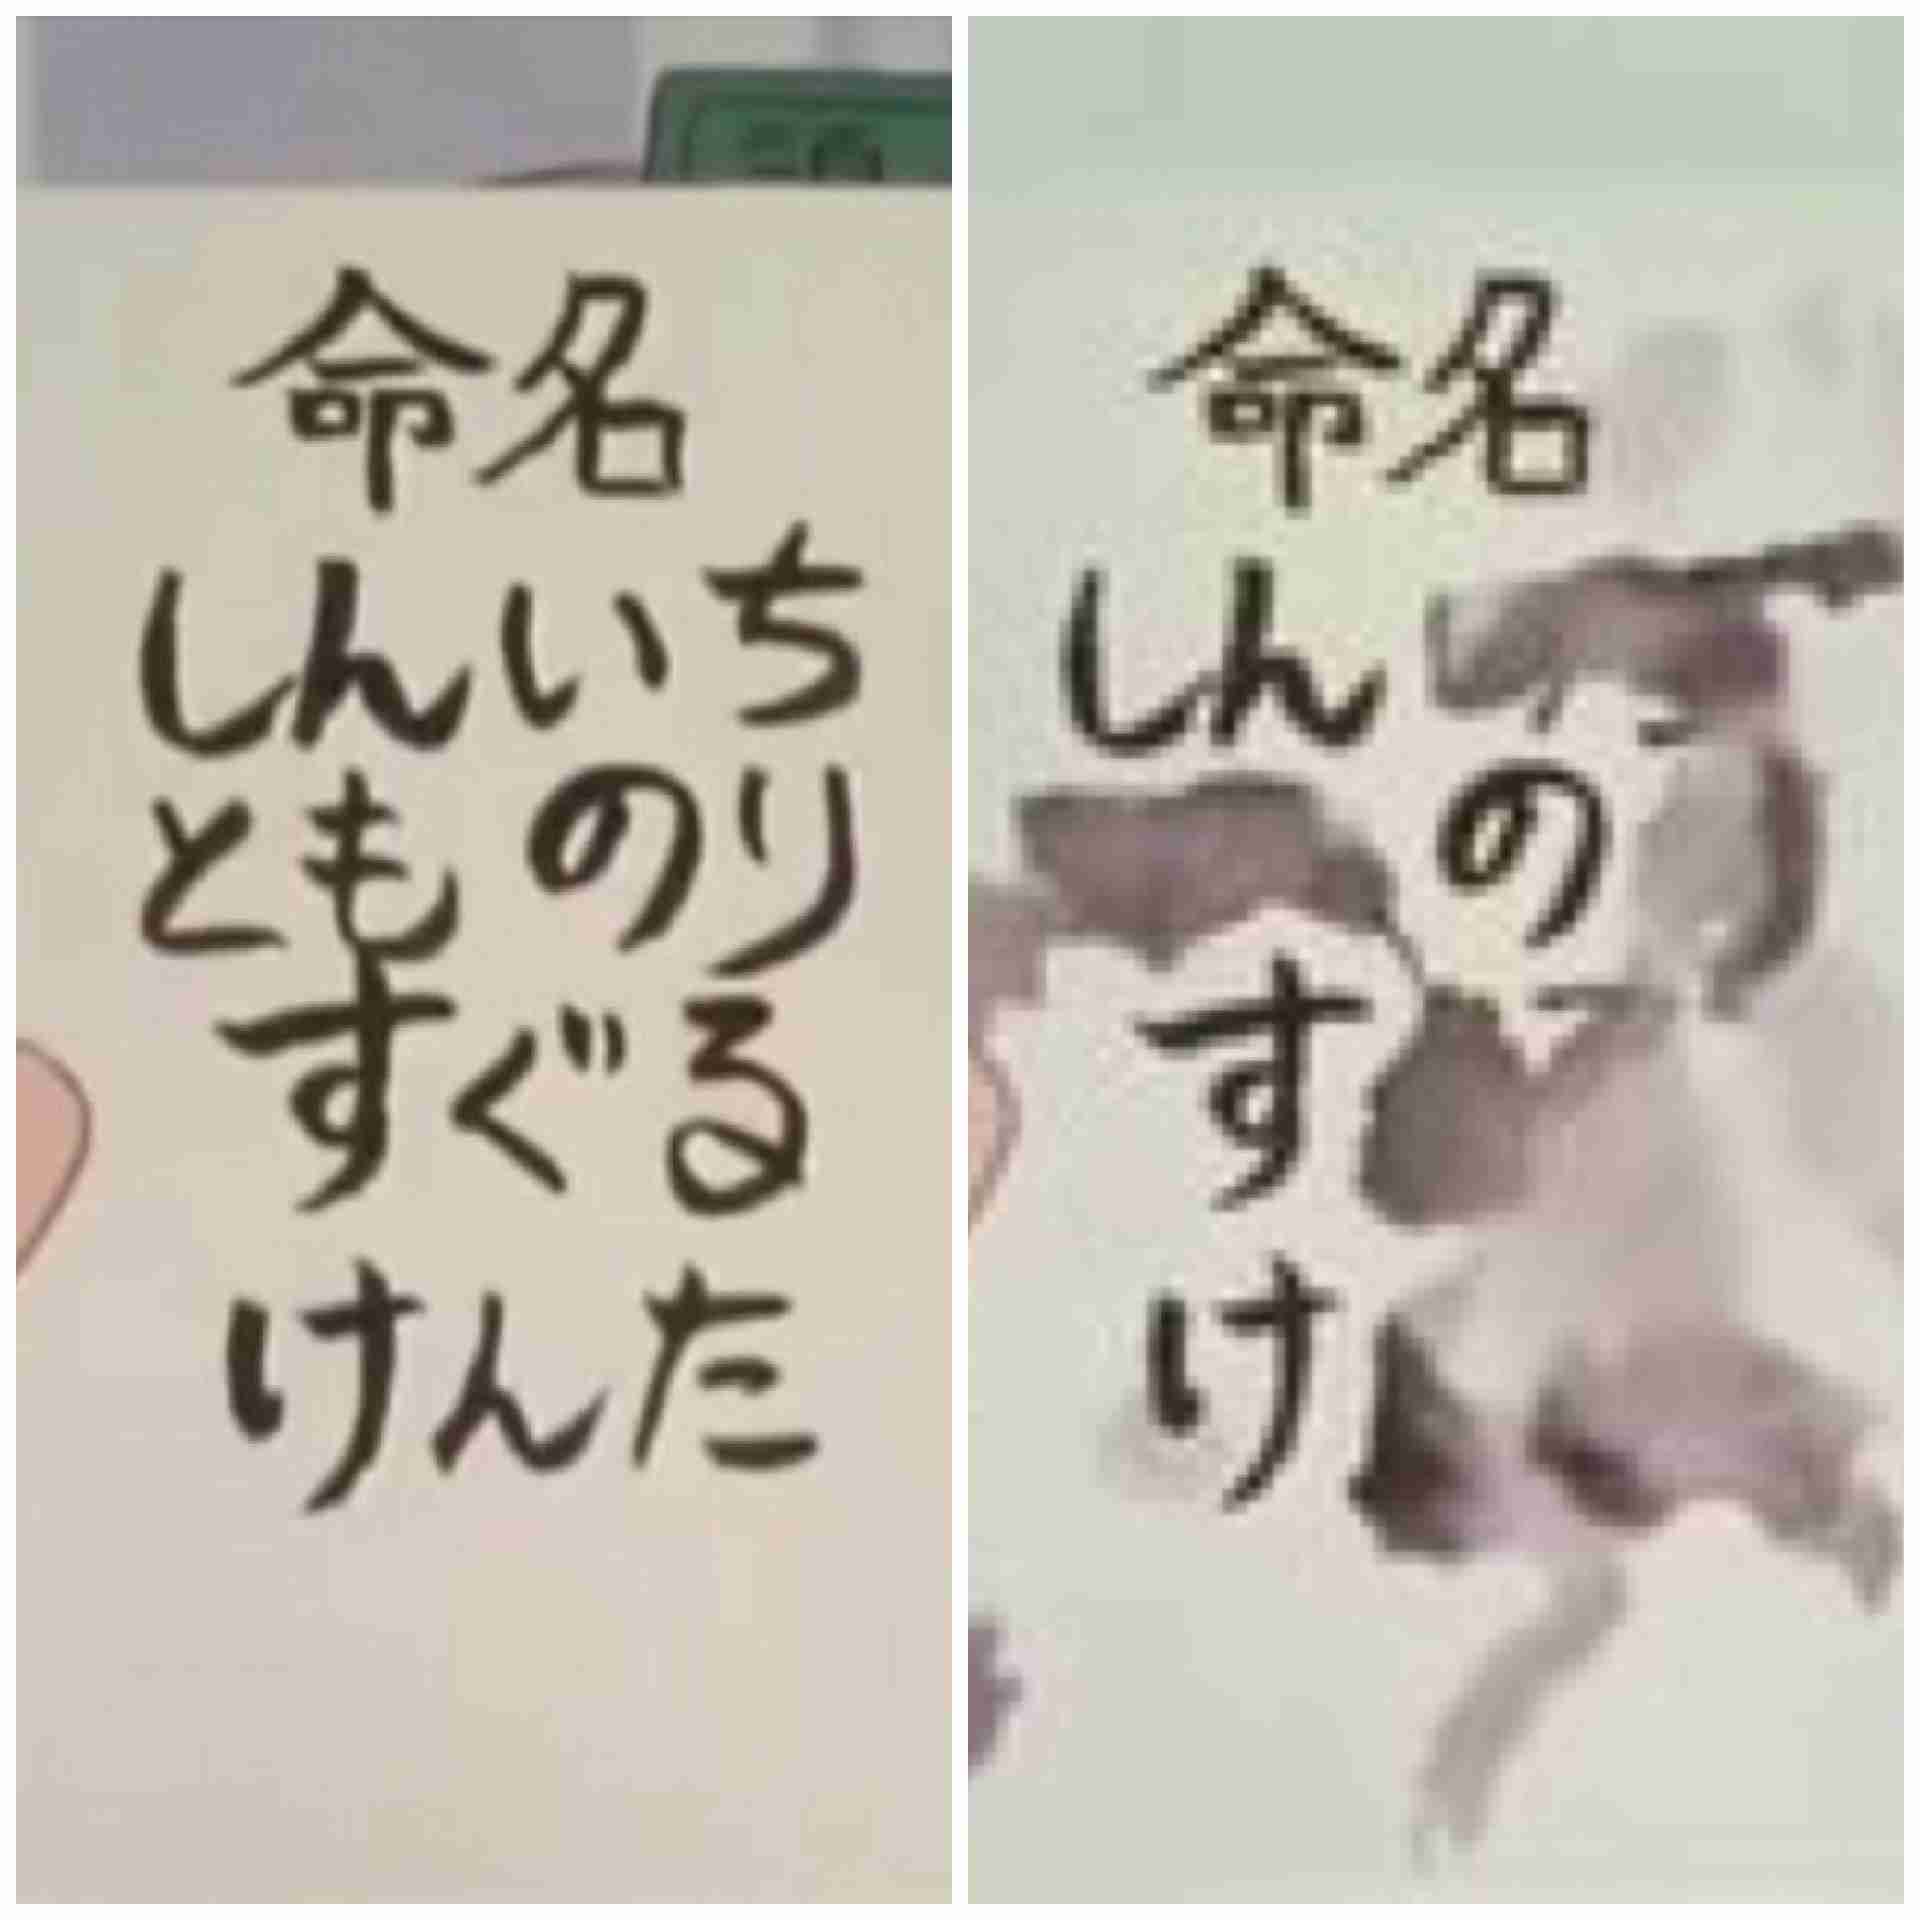 命名
しんいち
とものり
すぐる
けんた
命名
しん
の
す
け